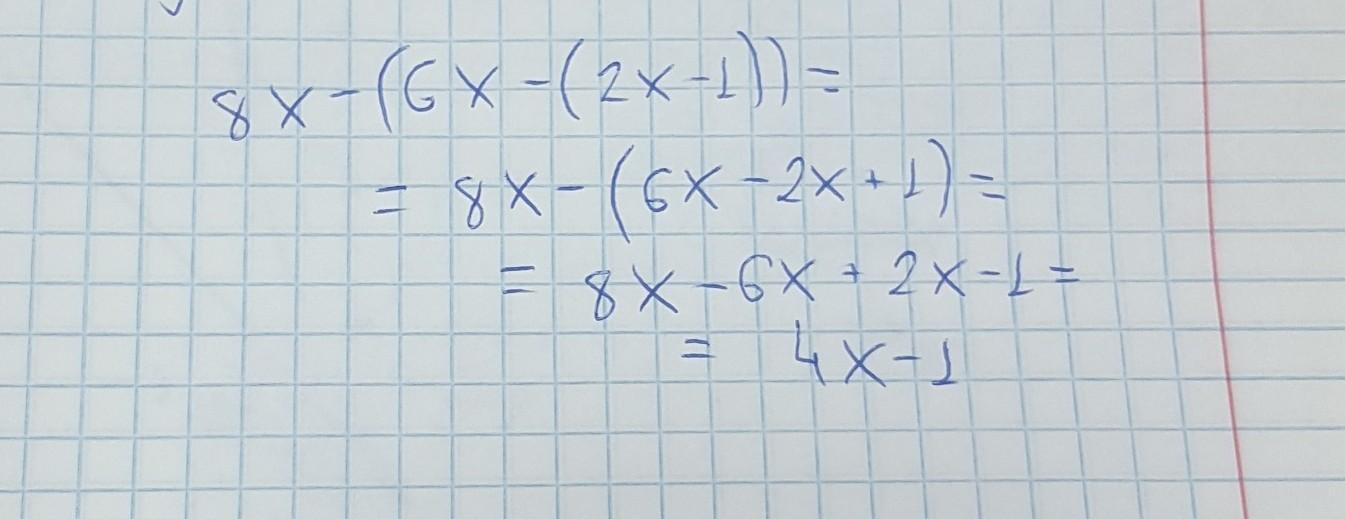 8x-(6x-(2x-1))=
= 8x-(6x-2x+1)=
= 8x-6x+2x-1=
= 4x-1